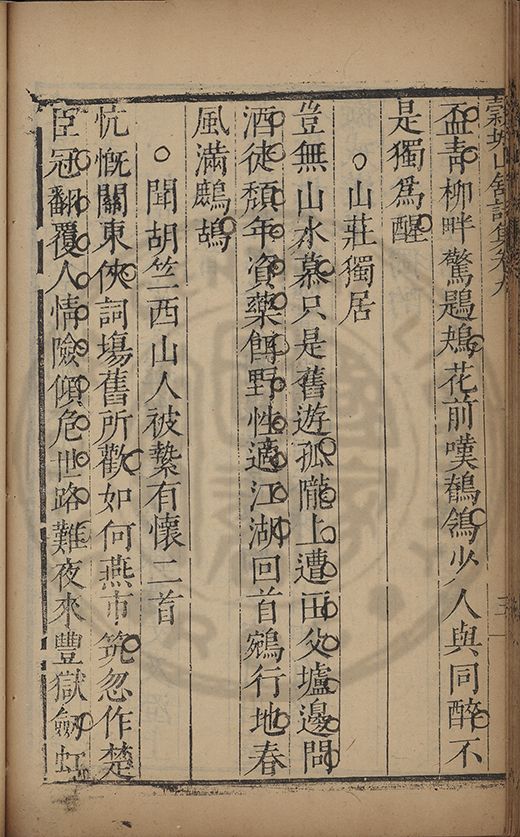 穀城山館詩集卷九
盃青柳畔驚鶗鴂花前嘆鶺鴒少人與同醉不
是獨為醒
○山莊獨居
豈無山水慕只是舊遊孤隴上遭田父壚邊問
酒徒頹年資藥餌野性適江湖回首鵷行地春
風滿鷓鴣
○聞胡竺西山人被縶有懷二首
忼慨關東俠詞場舊所歡如何燕市筑忽作楚
臣冠翻覆人情險傾危世路難夜來豐獄劍虹